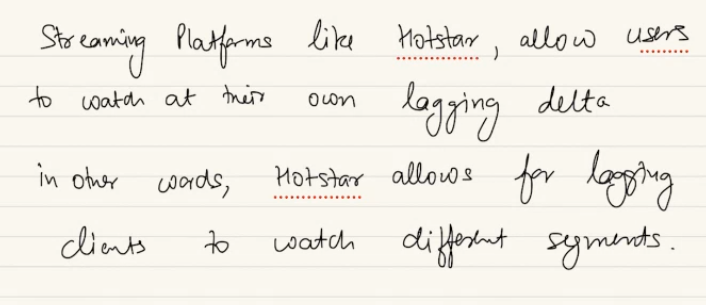 Streaming Platforms like Hotstar, allow users
to watch at their own lagging delta
in other words, Hotstar allows for lagging
clients to watch different segments.